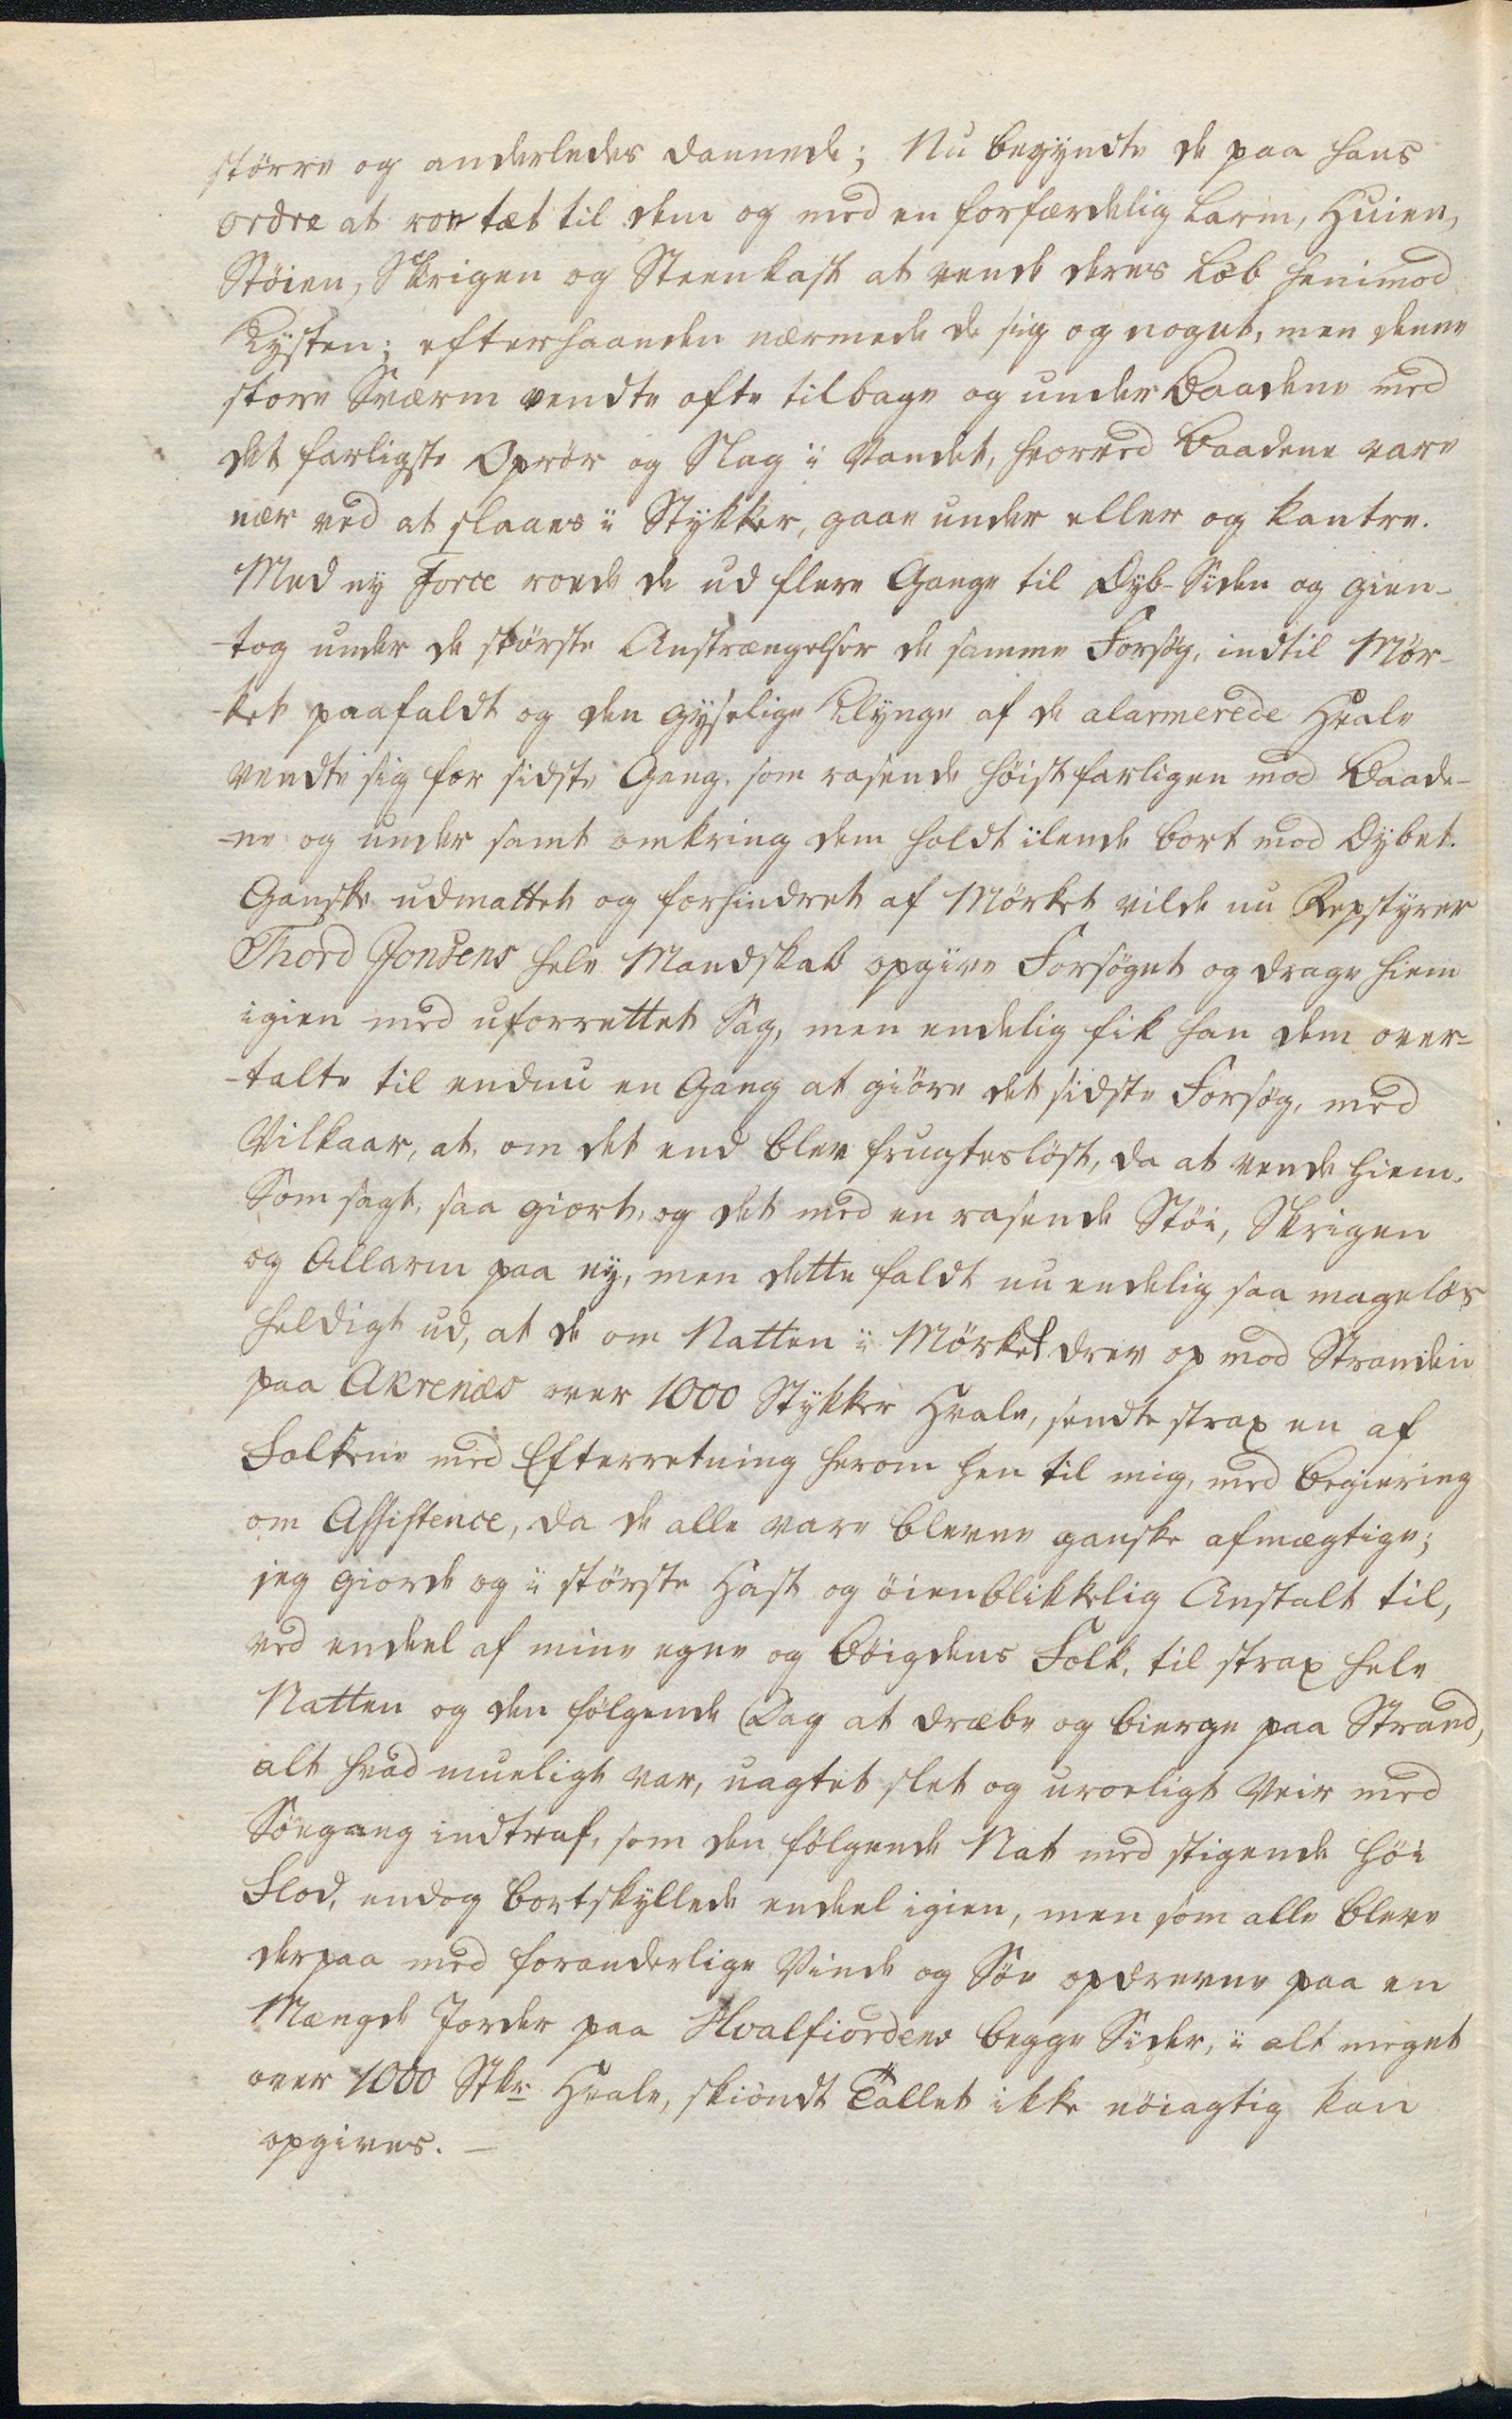 större og anderledes dannede; Nu begyndte de paa hans
ordre at roe tæt til dem og med en forfærdelig Larm, Huien,
Stöien, Skrigen og Steenkast at vende deres Löb henimod
Kysten; efterhaanden nærmede de sig og noget, men denne
store Sværm vendte ofte tilbage og under Baadene med
det farligste Oprör og Slag i Vandet, hvorved Baadene vare
nær ved at slaaes i Stykker, gaae under eller og kantre.
Med ny Force roede de ud flere Gange til Dyb-Siden og gien-
-tog under de störste Anstrængelser de samme Forsög, indtil Mör-
-ket paafaldt og den gyselige Klynge af de alarmerede Hvale
vendte sig for sidste Gang, som rasende höist farligen mod Baade-
-ne og under samt omkring dem holdt ilende bort mod Dybet.
Ganske udmattet og forhindret af Mörket vilde nu Repstyrer
Thord Jonsens hele Mandskab opgive Forsöget og drage hiem
igien med uforrettet Sag, men endelig fik han dem over-
-talte til endnu en Gang at giöre det sidste Forsög, med
Vilkaar, at, om det end blev frugteslöst, da at vende hiem.
Som sagt, saa giort, og det med en rasende Stöi, Skrigen
og Allarm paa ny, men dette faldt nu endelig saa magelös
heldigt ud, at de om Natten i Mörket drev op mod Stranden
paa Akrenæs over 1000 Stykker Hvale, sendte strax en af
Folkene med Efterretning herom hen til mig, med Begiering
om Assistence, da de alle vare blevne ganske afmægtige;
jeg giorde og i störste Hast og öienblikkelig Anstalt til,
ved endeel af mine egne og Böigdens Folk, til strax hele
Natten og den fölgende Dag at dræbe og bierge paa Strand,
alt hvad mueligt var, uagtet slet og uroeligt Veir med
Söegang indtraf, som den fölgende Nat med stigende höi
Flod, endog bortskyllede endeel igien, men som alle bleve
derpaa med foranderlige Vinde og Söe opdrevne paa en
Mængde Jorder paa Hvalfiordens begge Sider, i alt meget
over 1000 Stkr Hvale, skiöndt Tallet ikke nöiagtig kan
opgives. –